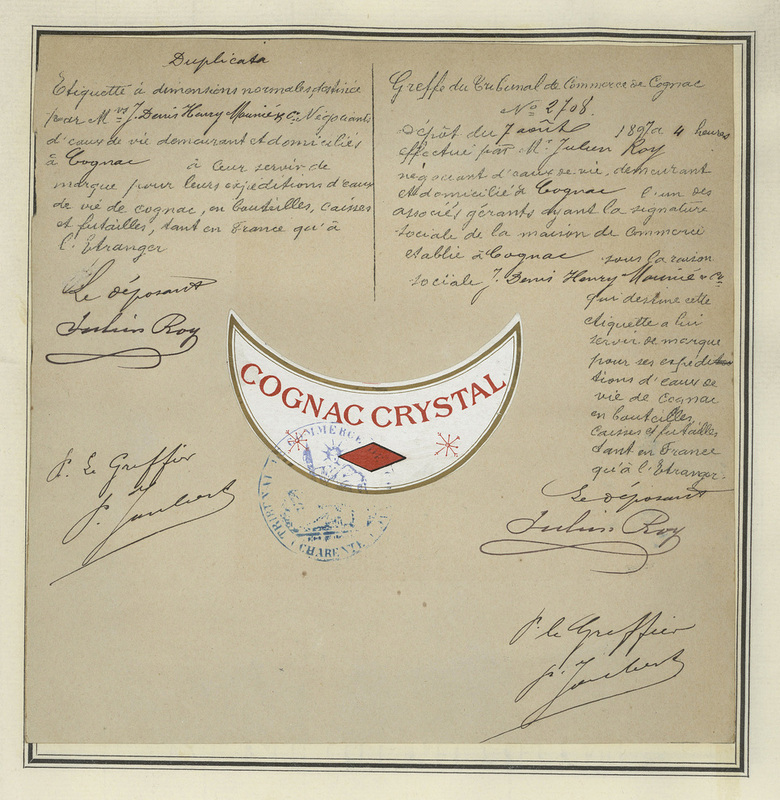 Duplicata
Etiquette à dimensions normales, destinée
par Mrs J. Denis Henry Mounié & Co Négociants
d'eaux de vie demeurant et domiciliés
à Cognac à leur servir de
marque pour leurs expéditions d'eaux
de vie de cognac, en bouteilles, caisses
et futailles, tant en France qu'à
l'Etranger
Le déposant
Julien Roy
P. Le Greffier
P. Joubert
Greffe du Tribunal de Commerce de Cognac
No 2708.
Dépôt du 7 août 1897 a 4 heures
effectué par Mr Julien Roy
négociant d'eaux de vie, demeurant
et domicilié à Cognac l'un des
associés gérants ayant la signature
sociale de la maison de commerce
etablie à Cognac sous la raison
sociale J. Denis Henry Mounié & Co
qui destine cette
étiquette a lui
servir de marque
pour ses expédi
tions d'eaux de
vie de Cognac
en bouteilles,
caisses et futailles
tant en France
qu'à l'Etranger.
Le déposant
Julien Roy
P. le Greffier
P. Joubert
COGNAC CRYSTAL
COMMERCE
TRIBUNAL
(CHARENTE)